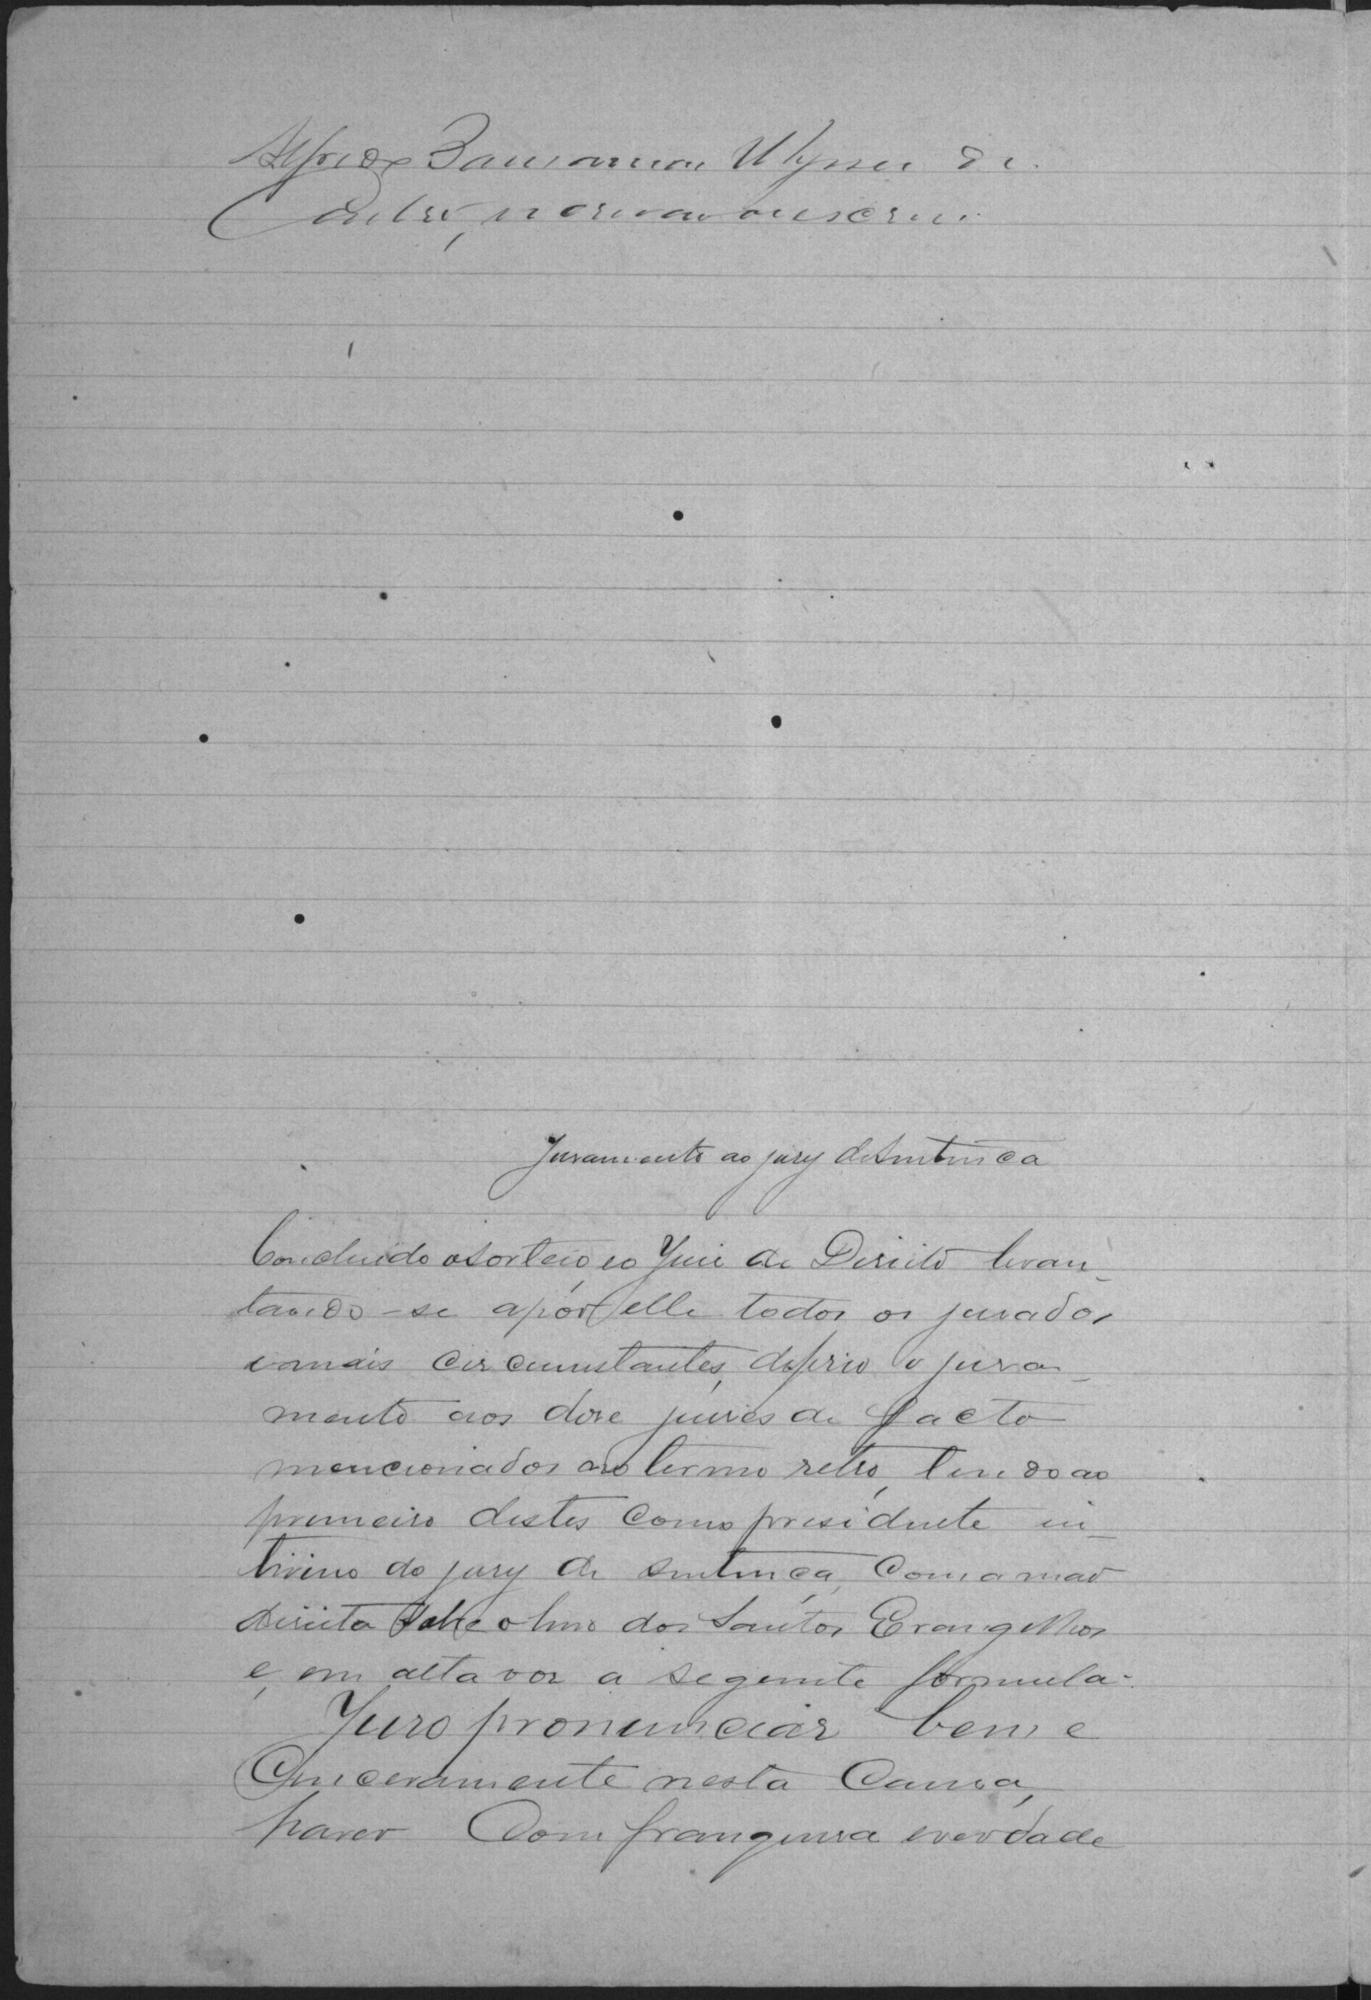 Alfredo Ulysses de
Castro, escrivão o escrevi.
Juramento ao jury de sentença
Concluido o sorteio, eo Juiz de Direito levan-
tando-se após elle todos os jurados
e mais circumstantes, deferio o jura-
mento aos doze juizes de facto
mencionados no termo retro, lendo ao
primeiro destes como presidente in-
terino do jury de sentença, com a mão
direita sobre o livro dos Santos Evangelhos
e, em alta voz a seguinte formula:
Juro pronunciar bem e
Cinceramente nesta Causa,
haver Com franqueza e verdade